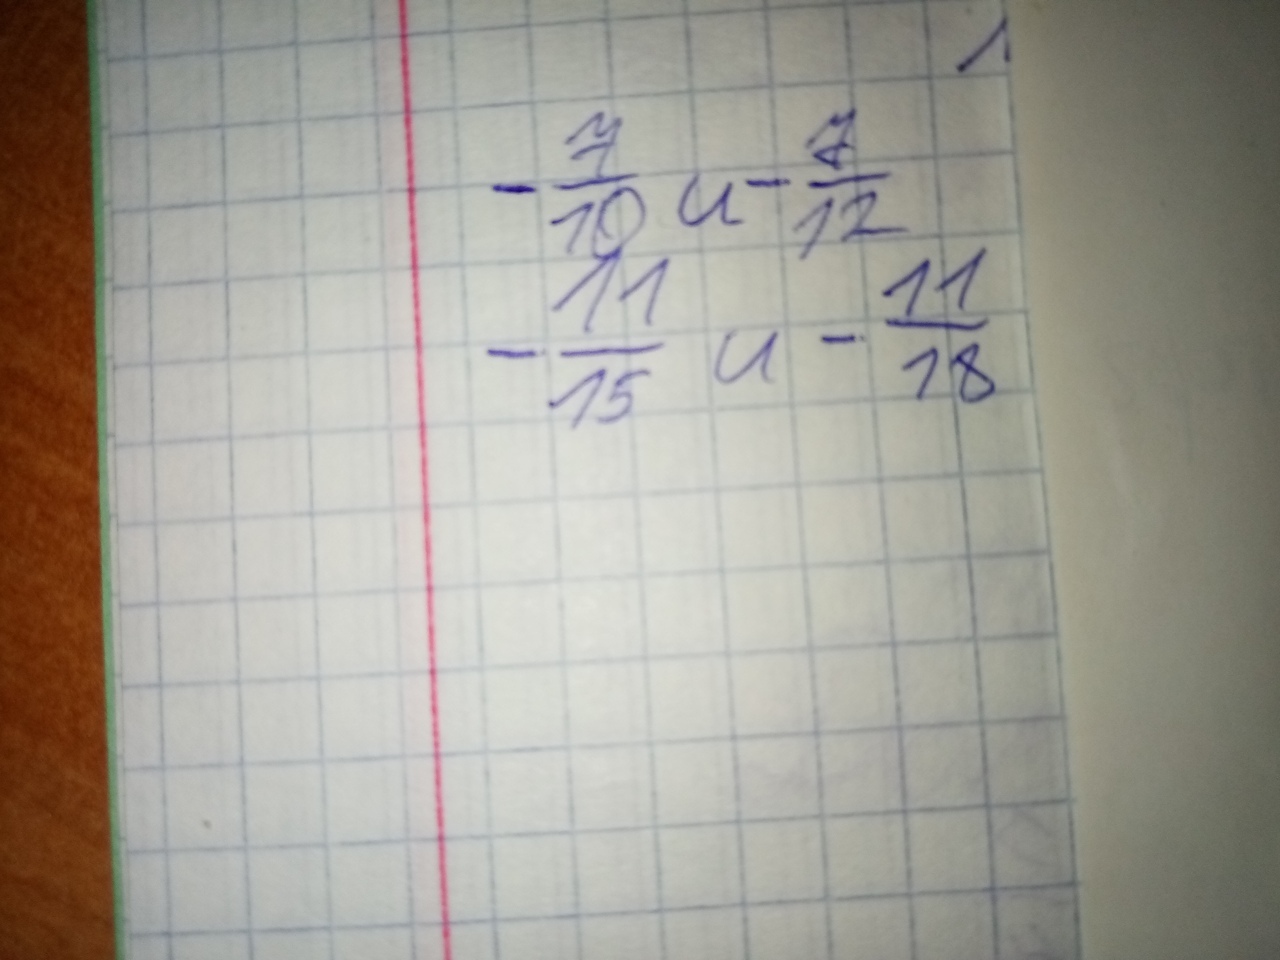 1
-7/10 и -7/12
-11/15 и -11/18